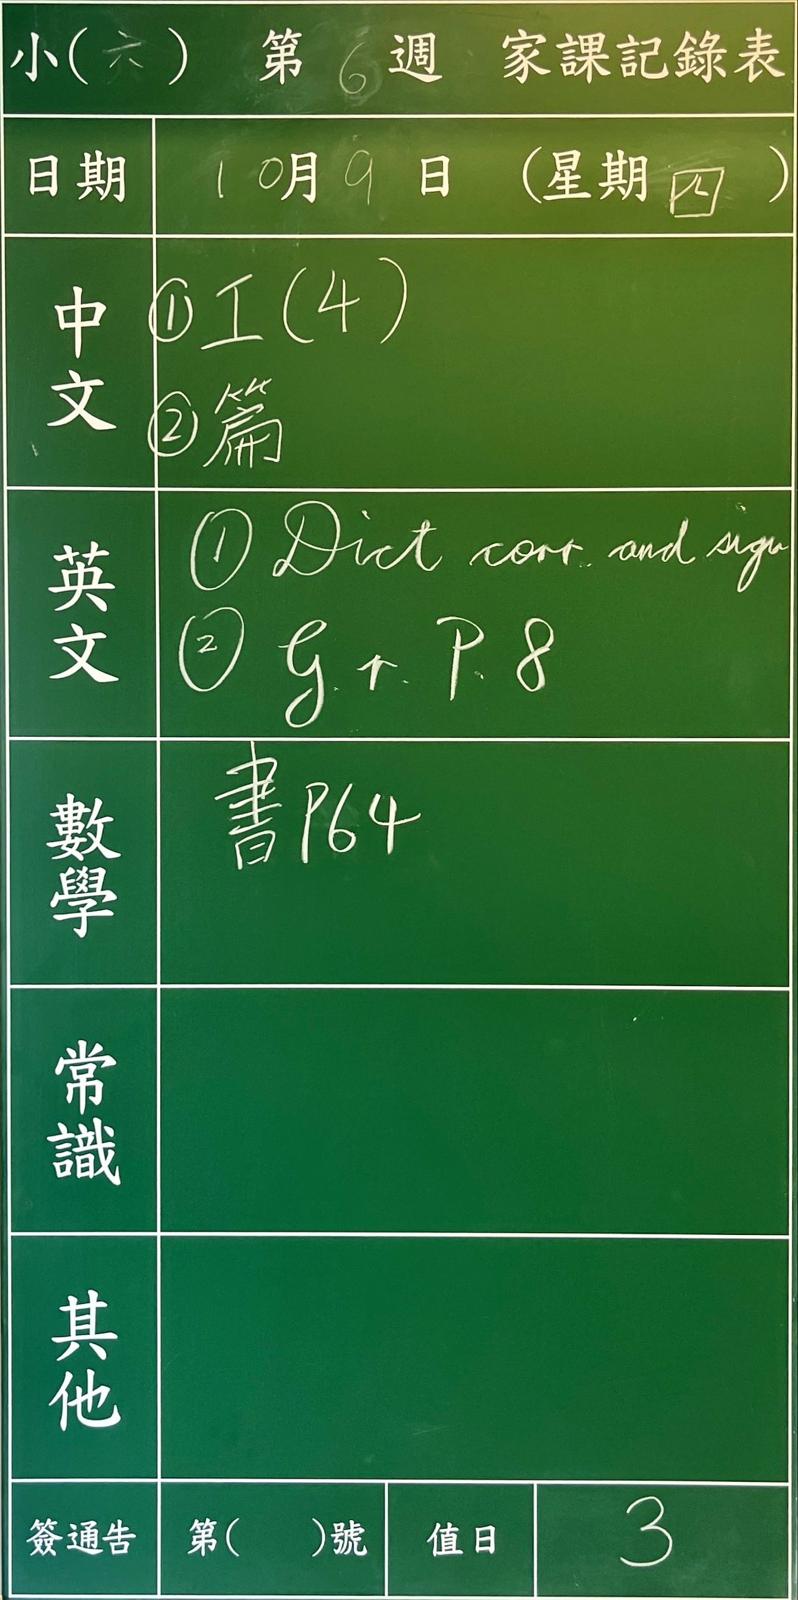 小(六) 第6週 家課記錄表
日期 10月9日 (星期四)
中文
①工(4)
②篇
英文
① Dict corr. and sign
② Gr. P. 8
數學
書P64
常識
其他
簽通告 第( )號 值日 3